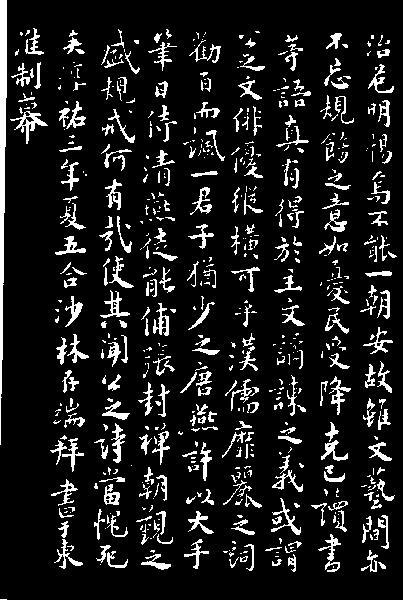 治危明惕焉不能一朝安故雖文藝間亦
不忘規飭之意如憂民受降克己讀書
等語真有得於主文譎諫之義或謂
公之文俳優縱橫可乎漢儒靡麗之詞
勸百而諷一君子猶少之唐燕許以大手
筆日侍清燕徒能俌張封禪朝覲之
盛規戒何有哉使其聞公之詩當愧死
矣淳祐三年夏五合沙林存端拜書于東
淮制幕